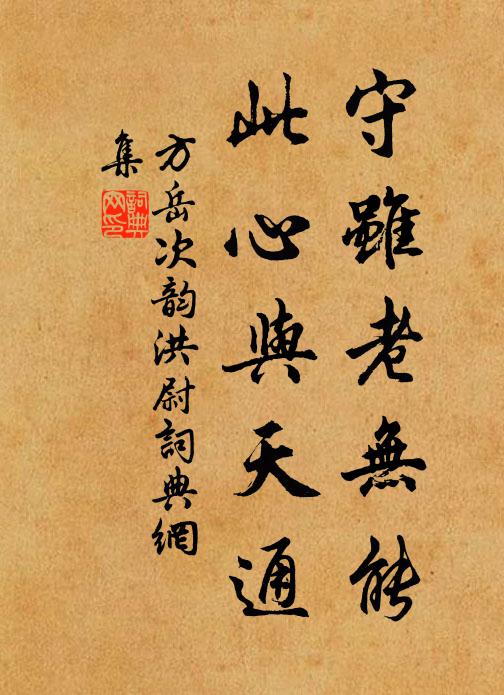 守雖老無能
此心與天通
方岳次韵洪尉詞典網
集
詞典网印